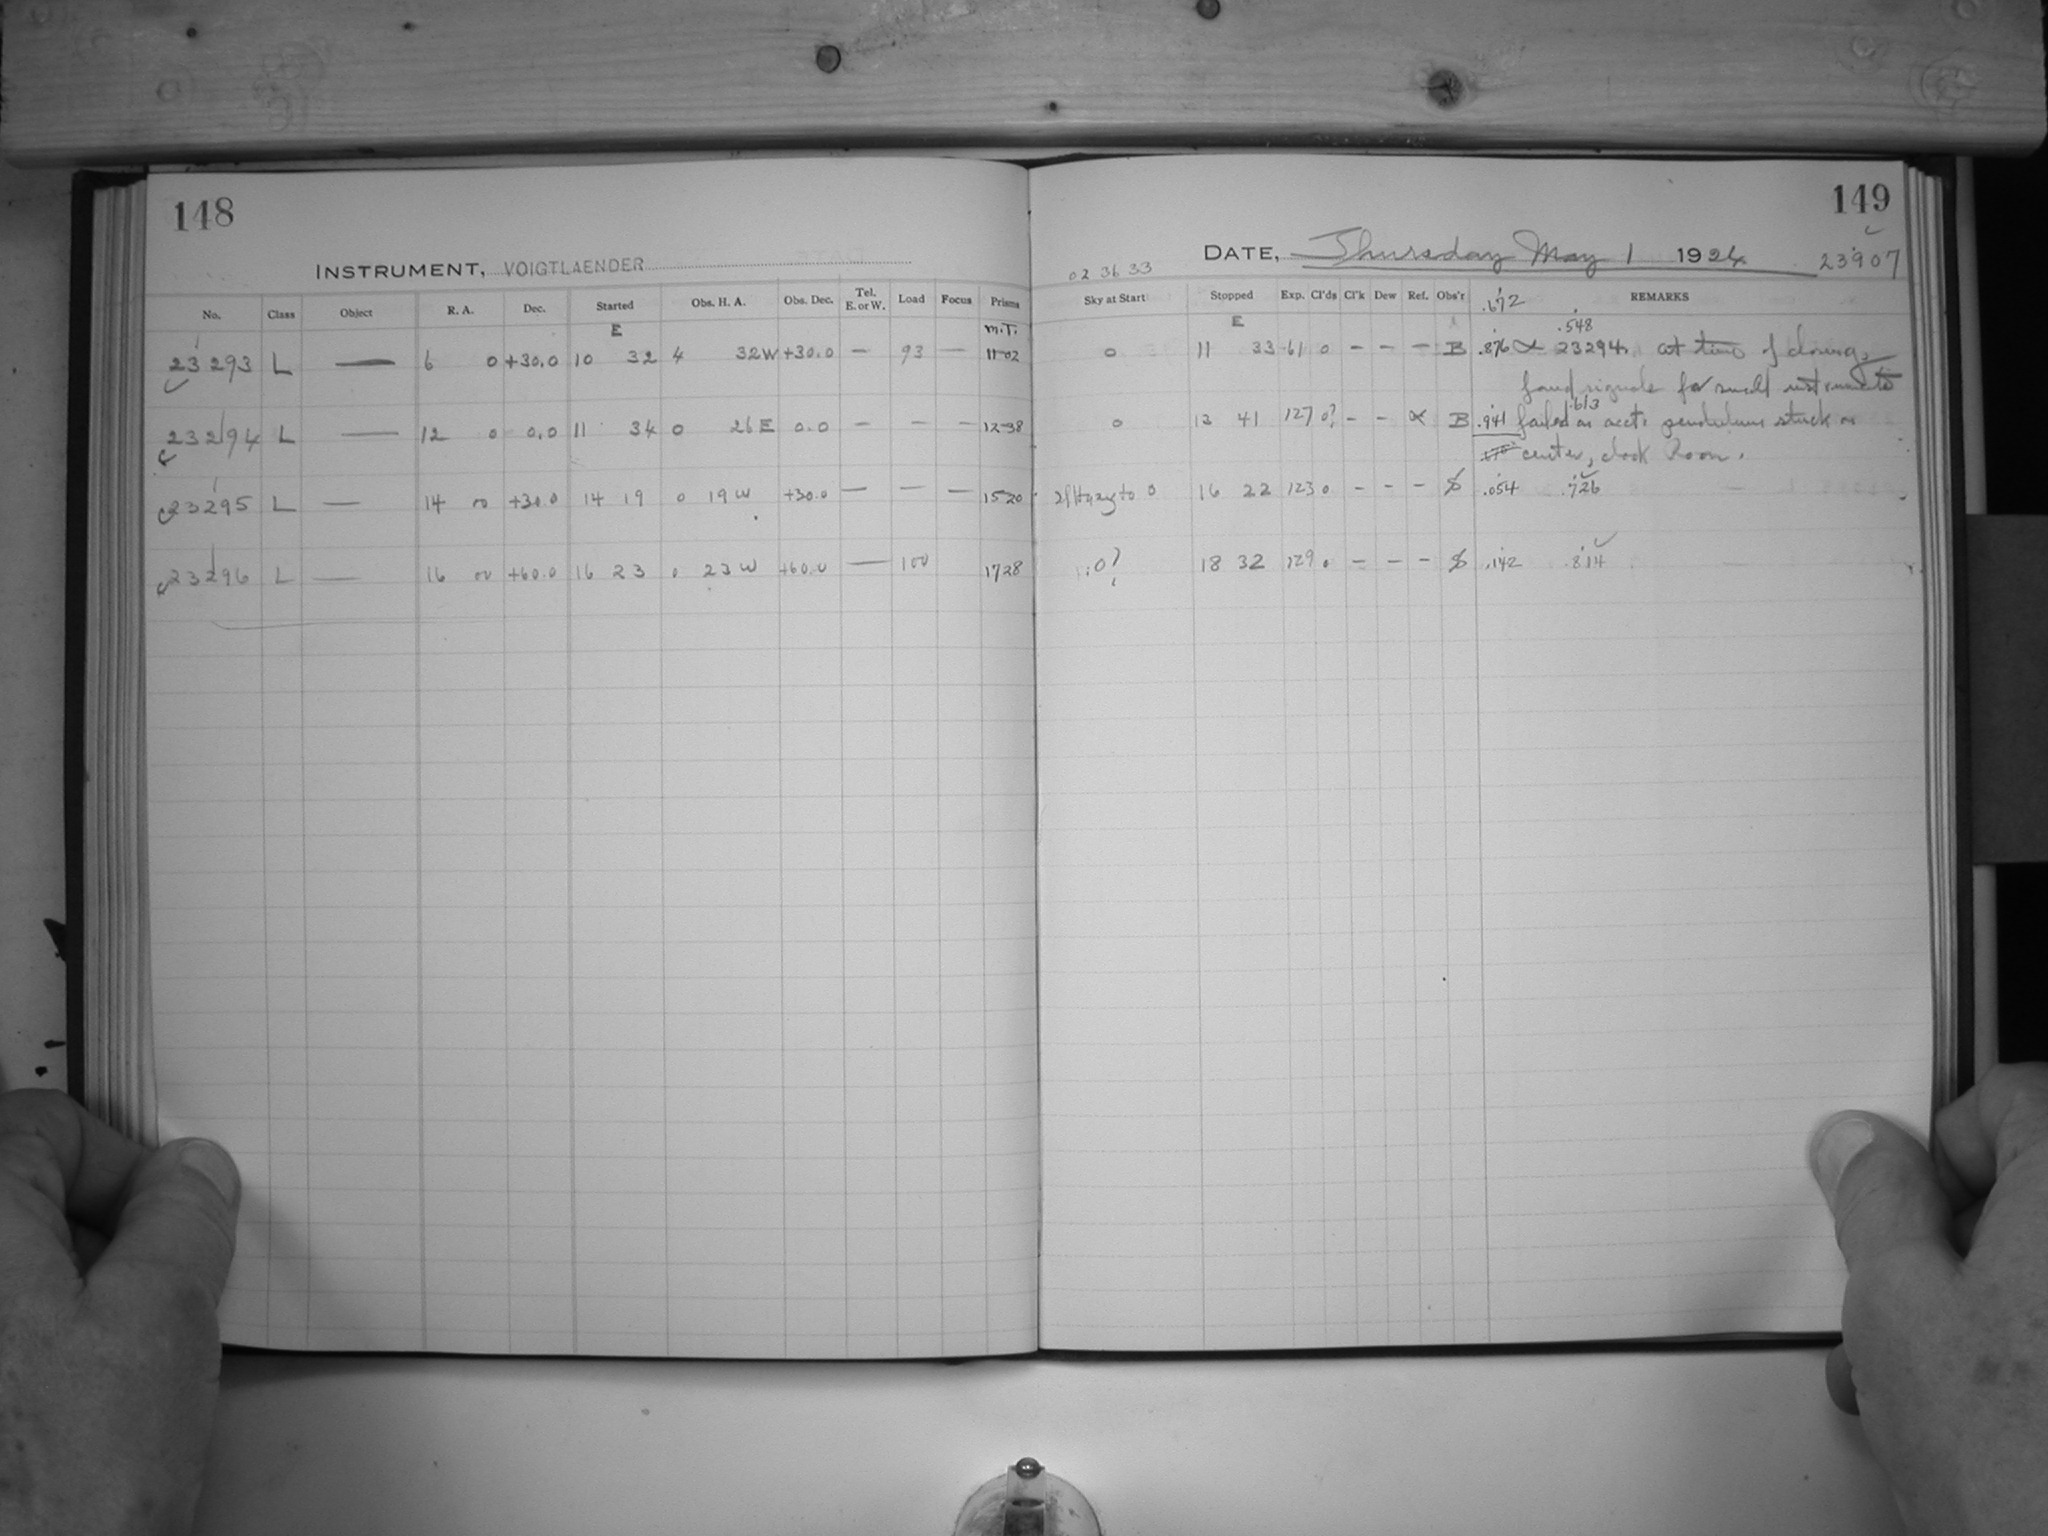 148
149
INSTRUMENT, VOIGTLAENDER
02 36 33
DATE, Thursday May 1 1924 23907
No. Class Object R. A. Dec. Started Obs. H. A. Obs. Dec. Tel. E. or W. Load Focus Prisms Sky at Start Stopped Exp. Cl'ds Cl'k Dew Ref. Obs'r REMARKS
.672
E M.T. E .548
23293 L — 6 0 +30.0 10 32 4 32W +30.0 — 93 — 11 02 0 11 33 61 0 — — — B .876 α 23294. at time of closing,
found signals for small instruments
.613
23294 L — 12 0 0.0 11 34 0 26E 0.0 — — — 12 38 0 13 41 127 0? — — α B .941 failed on acct. pendulum stuck on
center, clock Room.
23295 L — 14 00 +30.0 14 19 0 19W +30.0 — — — 15 20 Hazy to 0 16 22 123 0 — — — .054 .726
23296 L — 16 00 +60.0 16 23 0 23W +60.0 — 100 17 28 0? 18 32 129 0 — — — .142 .814